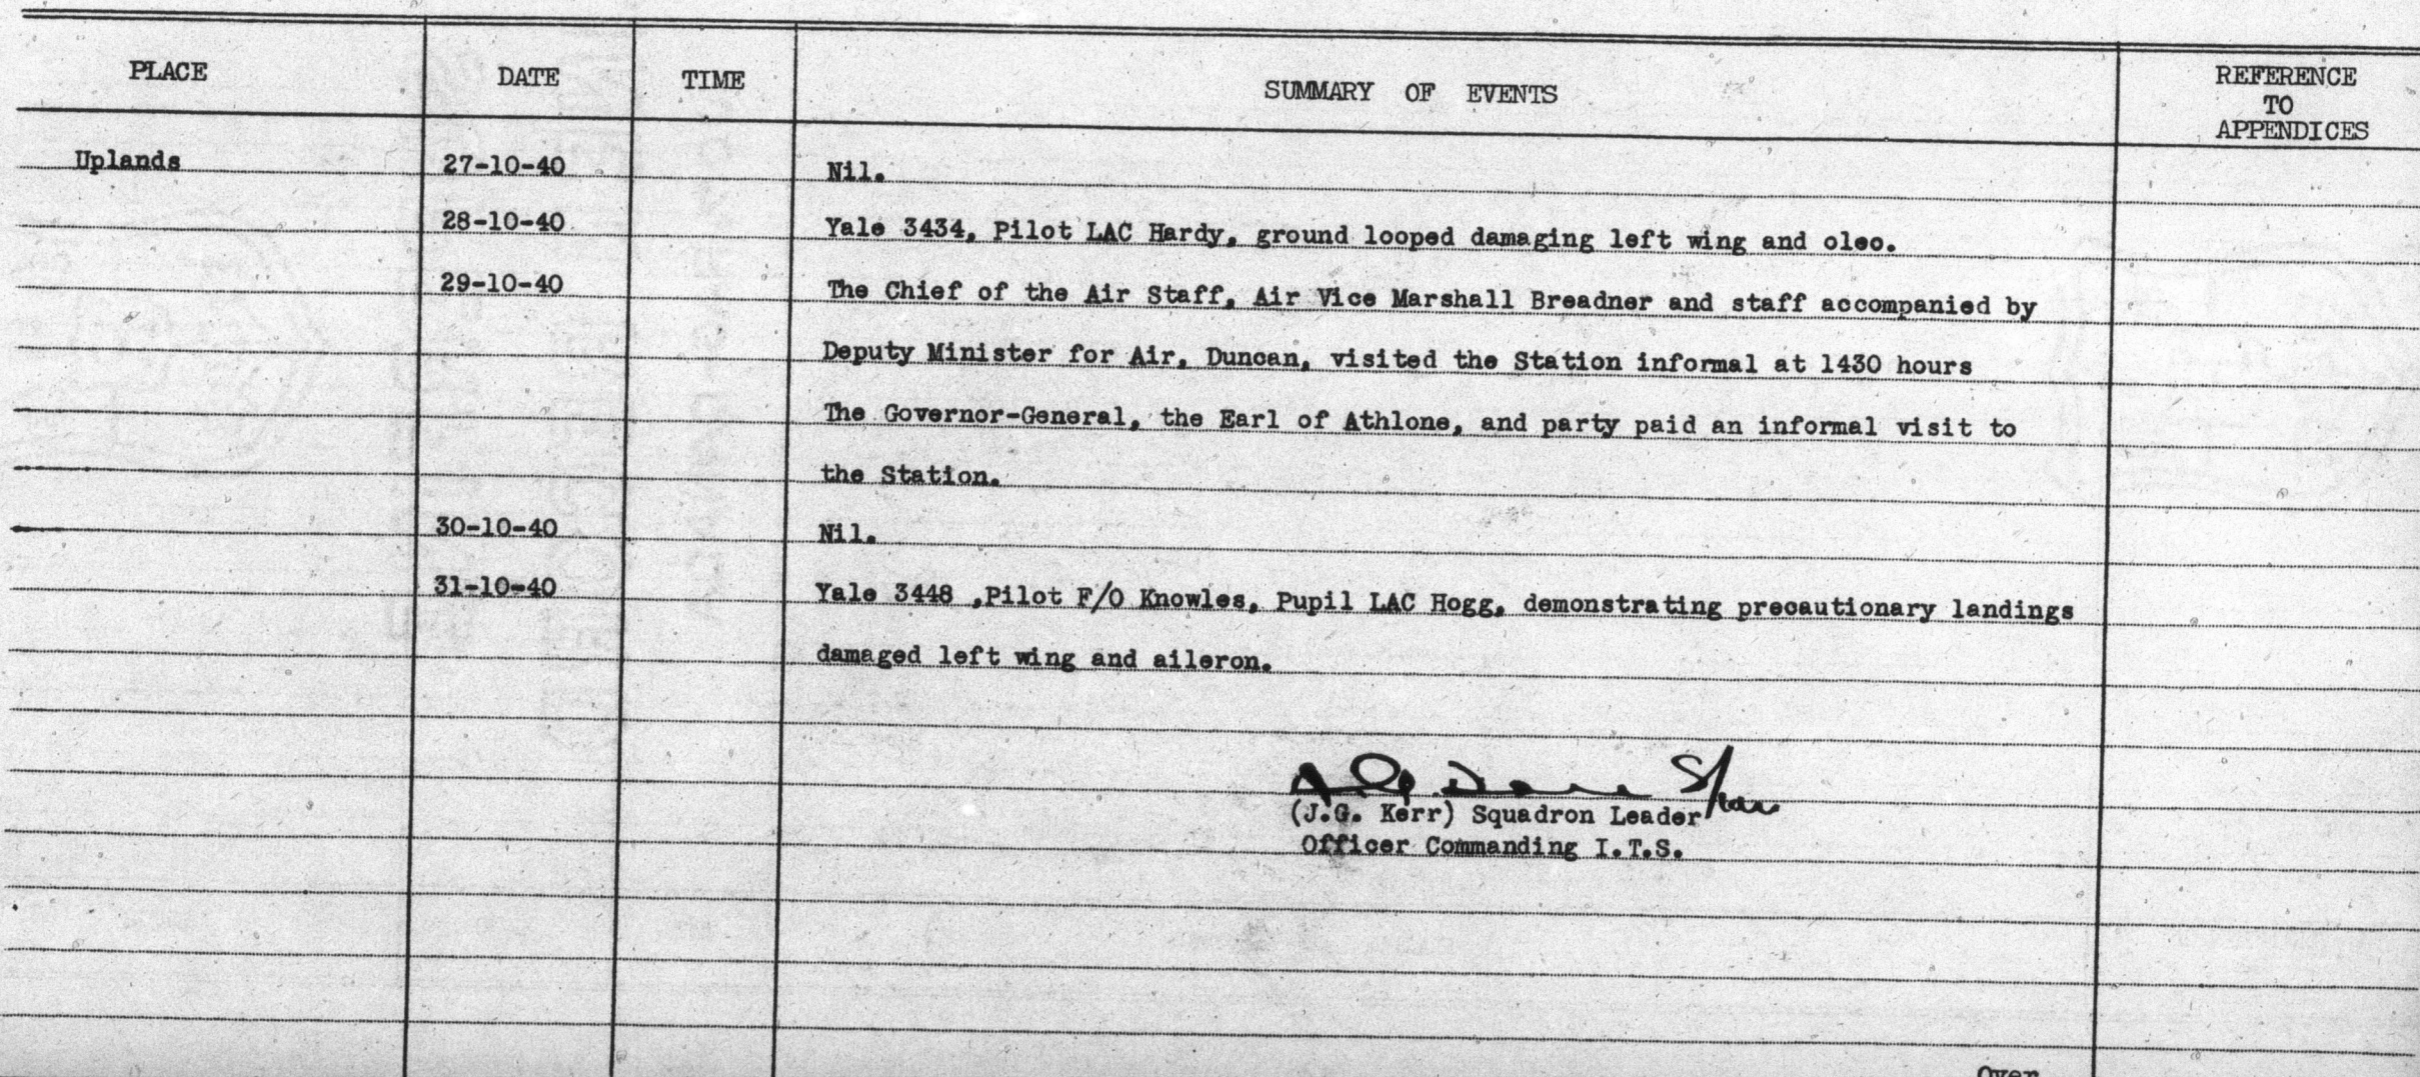 PLACE DATE TIME SUMMARY OF EVENTS REFERENCE TO APPENDICES
Uplands 27-10-40 Nil.
28-10-40 Yale 3434, Pilot LAC Hardy, ground looped damaging left wing and oleo.
29-10-40 The Chief of the Air Staff, Air Vice Marshall Breadner and staff accompanied by
Deputy Minister for Air, Duncan, visited the Station informal at 1430 hours
The Governor-General, the Earl of Athlone, and party paid an informal visit to
the Station.
30-10-40 Nil.
31-10-40 Yale 3448 ,Pilot F/O Knowles, Pupil LAC Hogg, demonstrating precautionary landings
damaged left wing and aileron.
(J.G. Kerr) Squadron Leader
Officer Commanding I.T.S.
Over